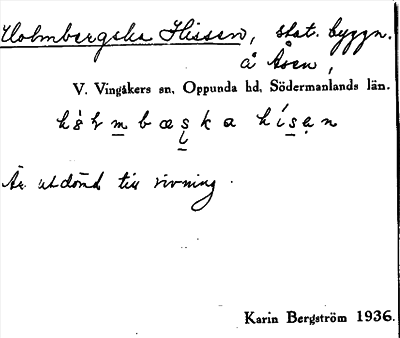 Holmbergska Hissen, stat. byggn.
å Åsen,
V. Vingåkers sn, Oppunda hd, Södermanlands län.
m b æ s k a h í s e n
Är utdömd till rivning.
Karin Bergström 1936.